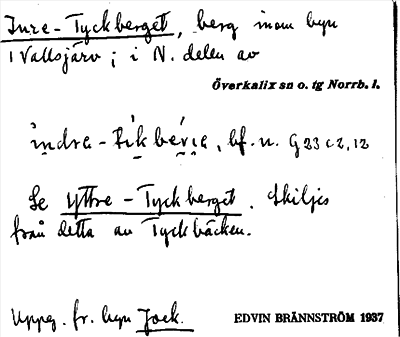 Inre-Tyckberget, berg inom byn
1 Vallsjärv; i N. delen av
Överkalix sn o. tg Norrb. l.
bf. n. G 23 c 2, 12
Se Yttre-Tyckberget. Skiljes
från detta av Tyckbäcken.
Uppg. fr. byn Jock. EDVIN BRÄNNSTRÖM 1937